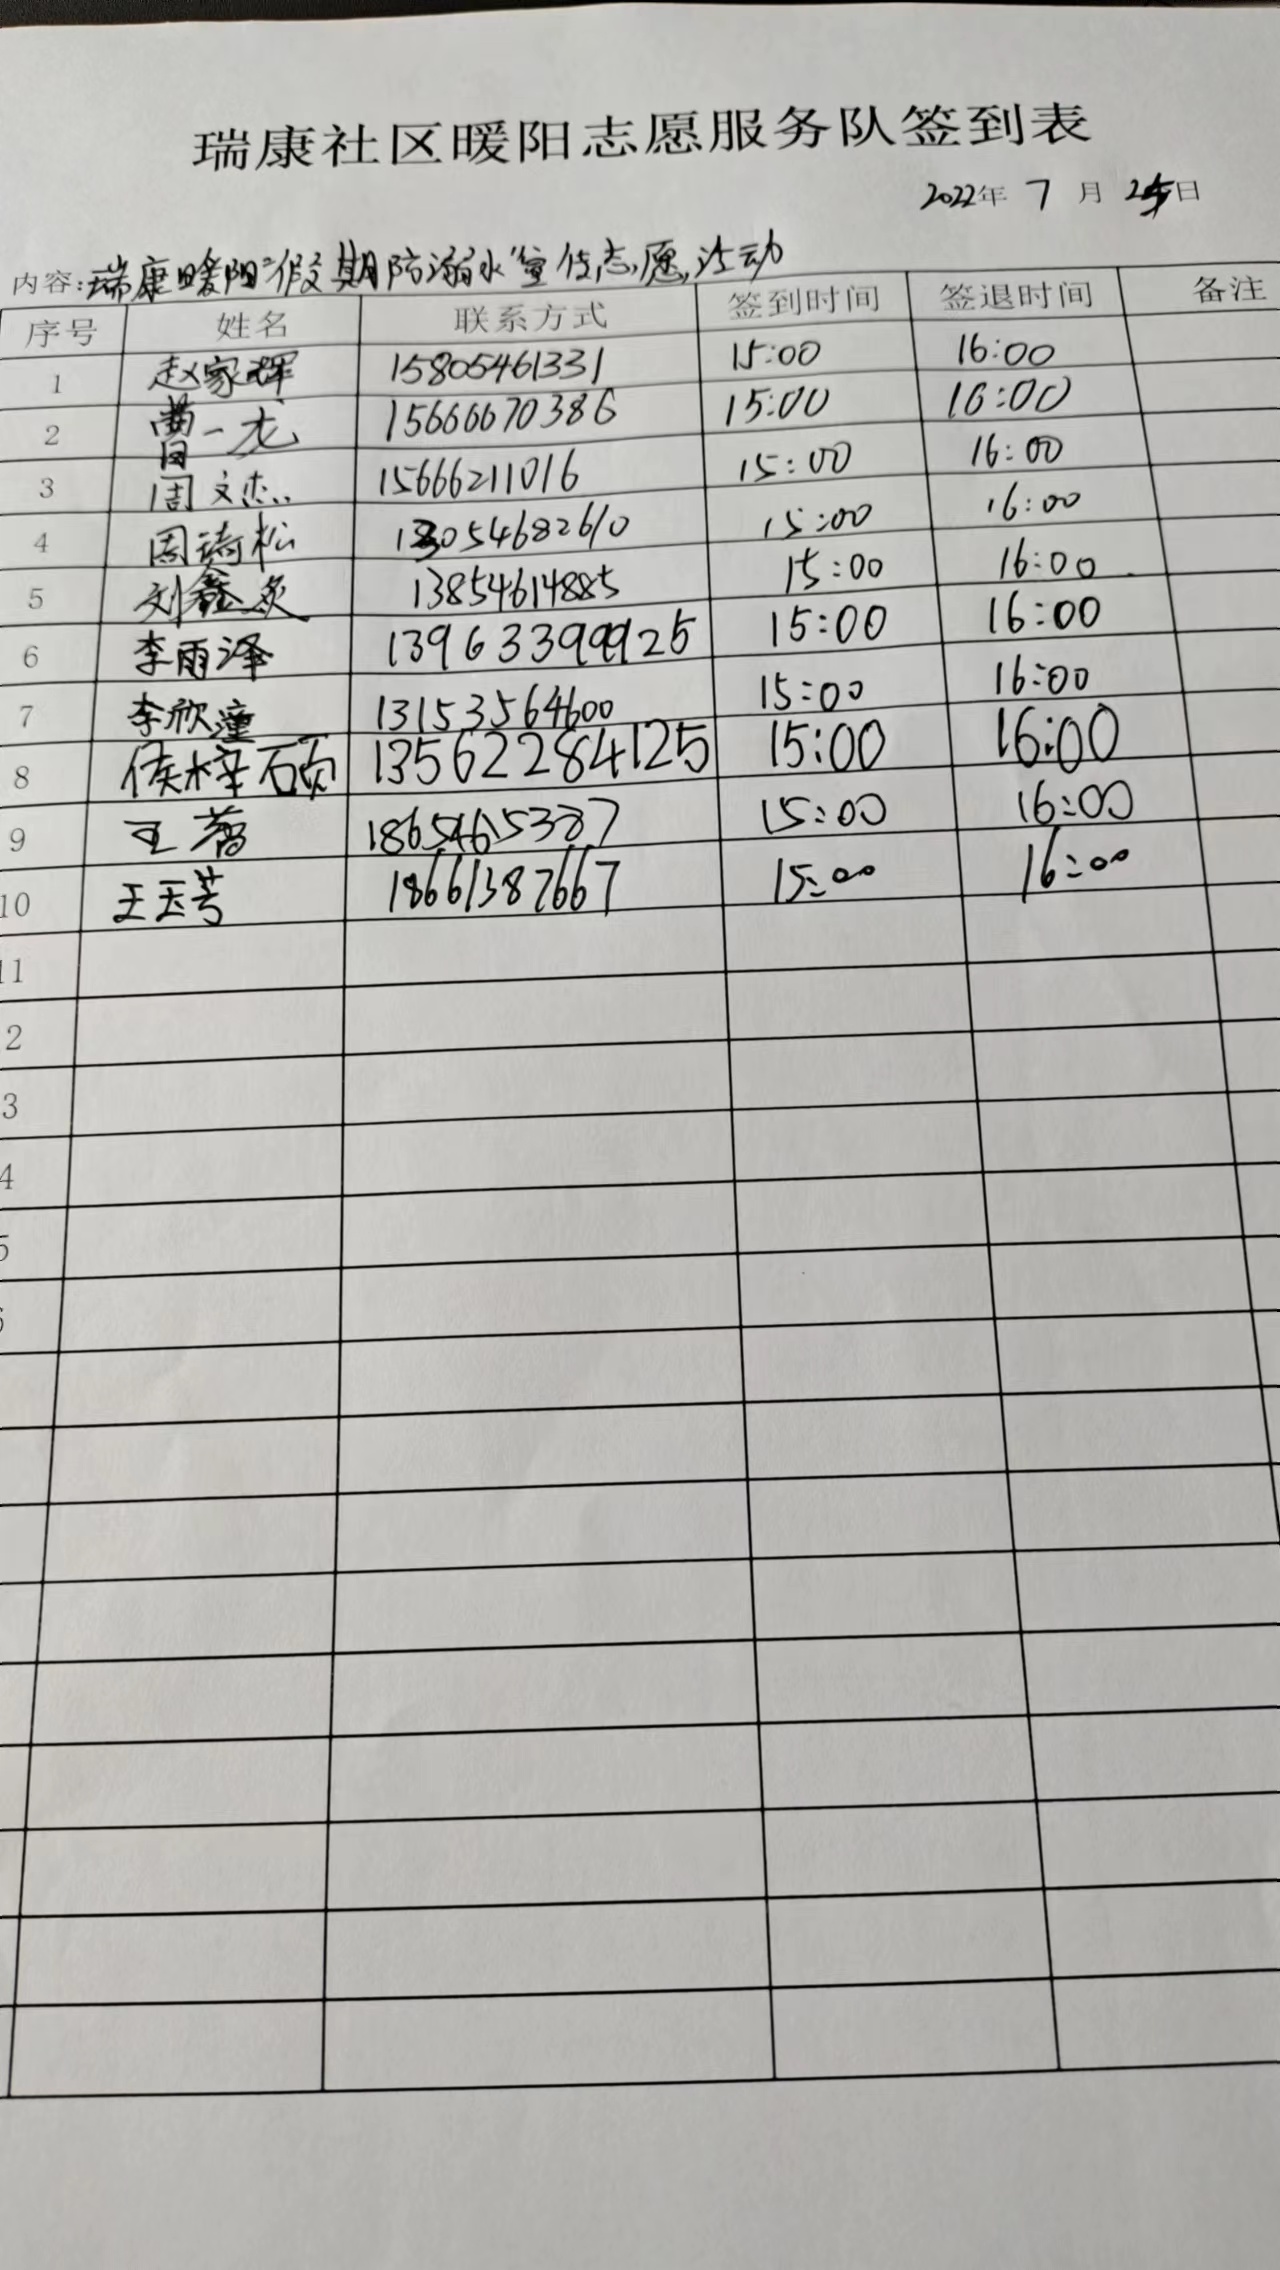 瑞康社区暖阳志愿服务队签到表
2022年 7 月 25日
内容:瑞康暖阳“假期防溺水”宣传志愿活动
序号 姓名 联系方式 签到时间 签退时间 备注
1 赵家辉 15805461331 15:00 16:00
2 曹一龙 15666670386 15:00 16:00
3 周文杰 15666211016 15:00 16:00
4 周琦松 133054682610 15:00 16:00
5 刘鑫炎 13854614885 15:00 16:00
6 李雨泽 13963399925 15:00 16:00
7 李欣潼 13153564600 15:00 16:00
8 侯梓硕 13562284125 15:00 16:00
9 王蓉 18654615387 15:00 16:00
10 王玉芳 18661387667 15:00 16:00
11
2
3
4
5
6